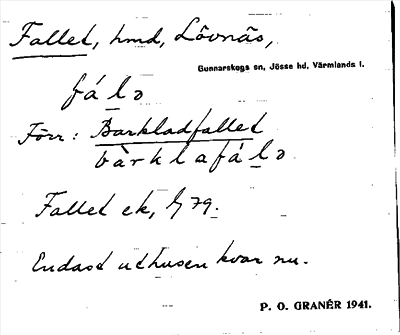 Fallet, hmd, Lövnäs,
Gunnarskogs sn, Jösse hd, Värmlands l.
fá l ɔ
Förr: Barkladfallet
bàrklafá l ɔ
Fallet ek, 79.
Endast uthusen kvar nu.
P. O. GRANÉR 1941.